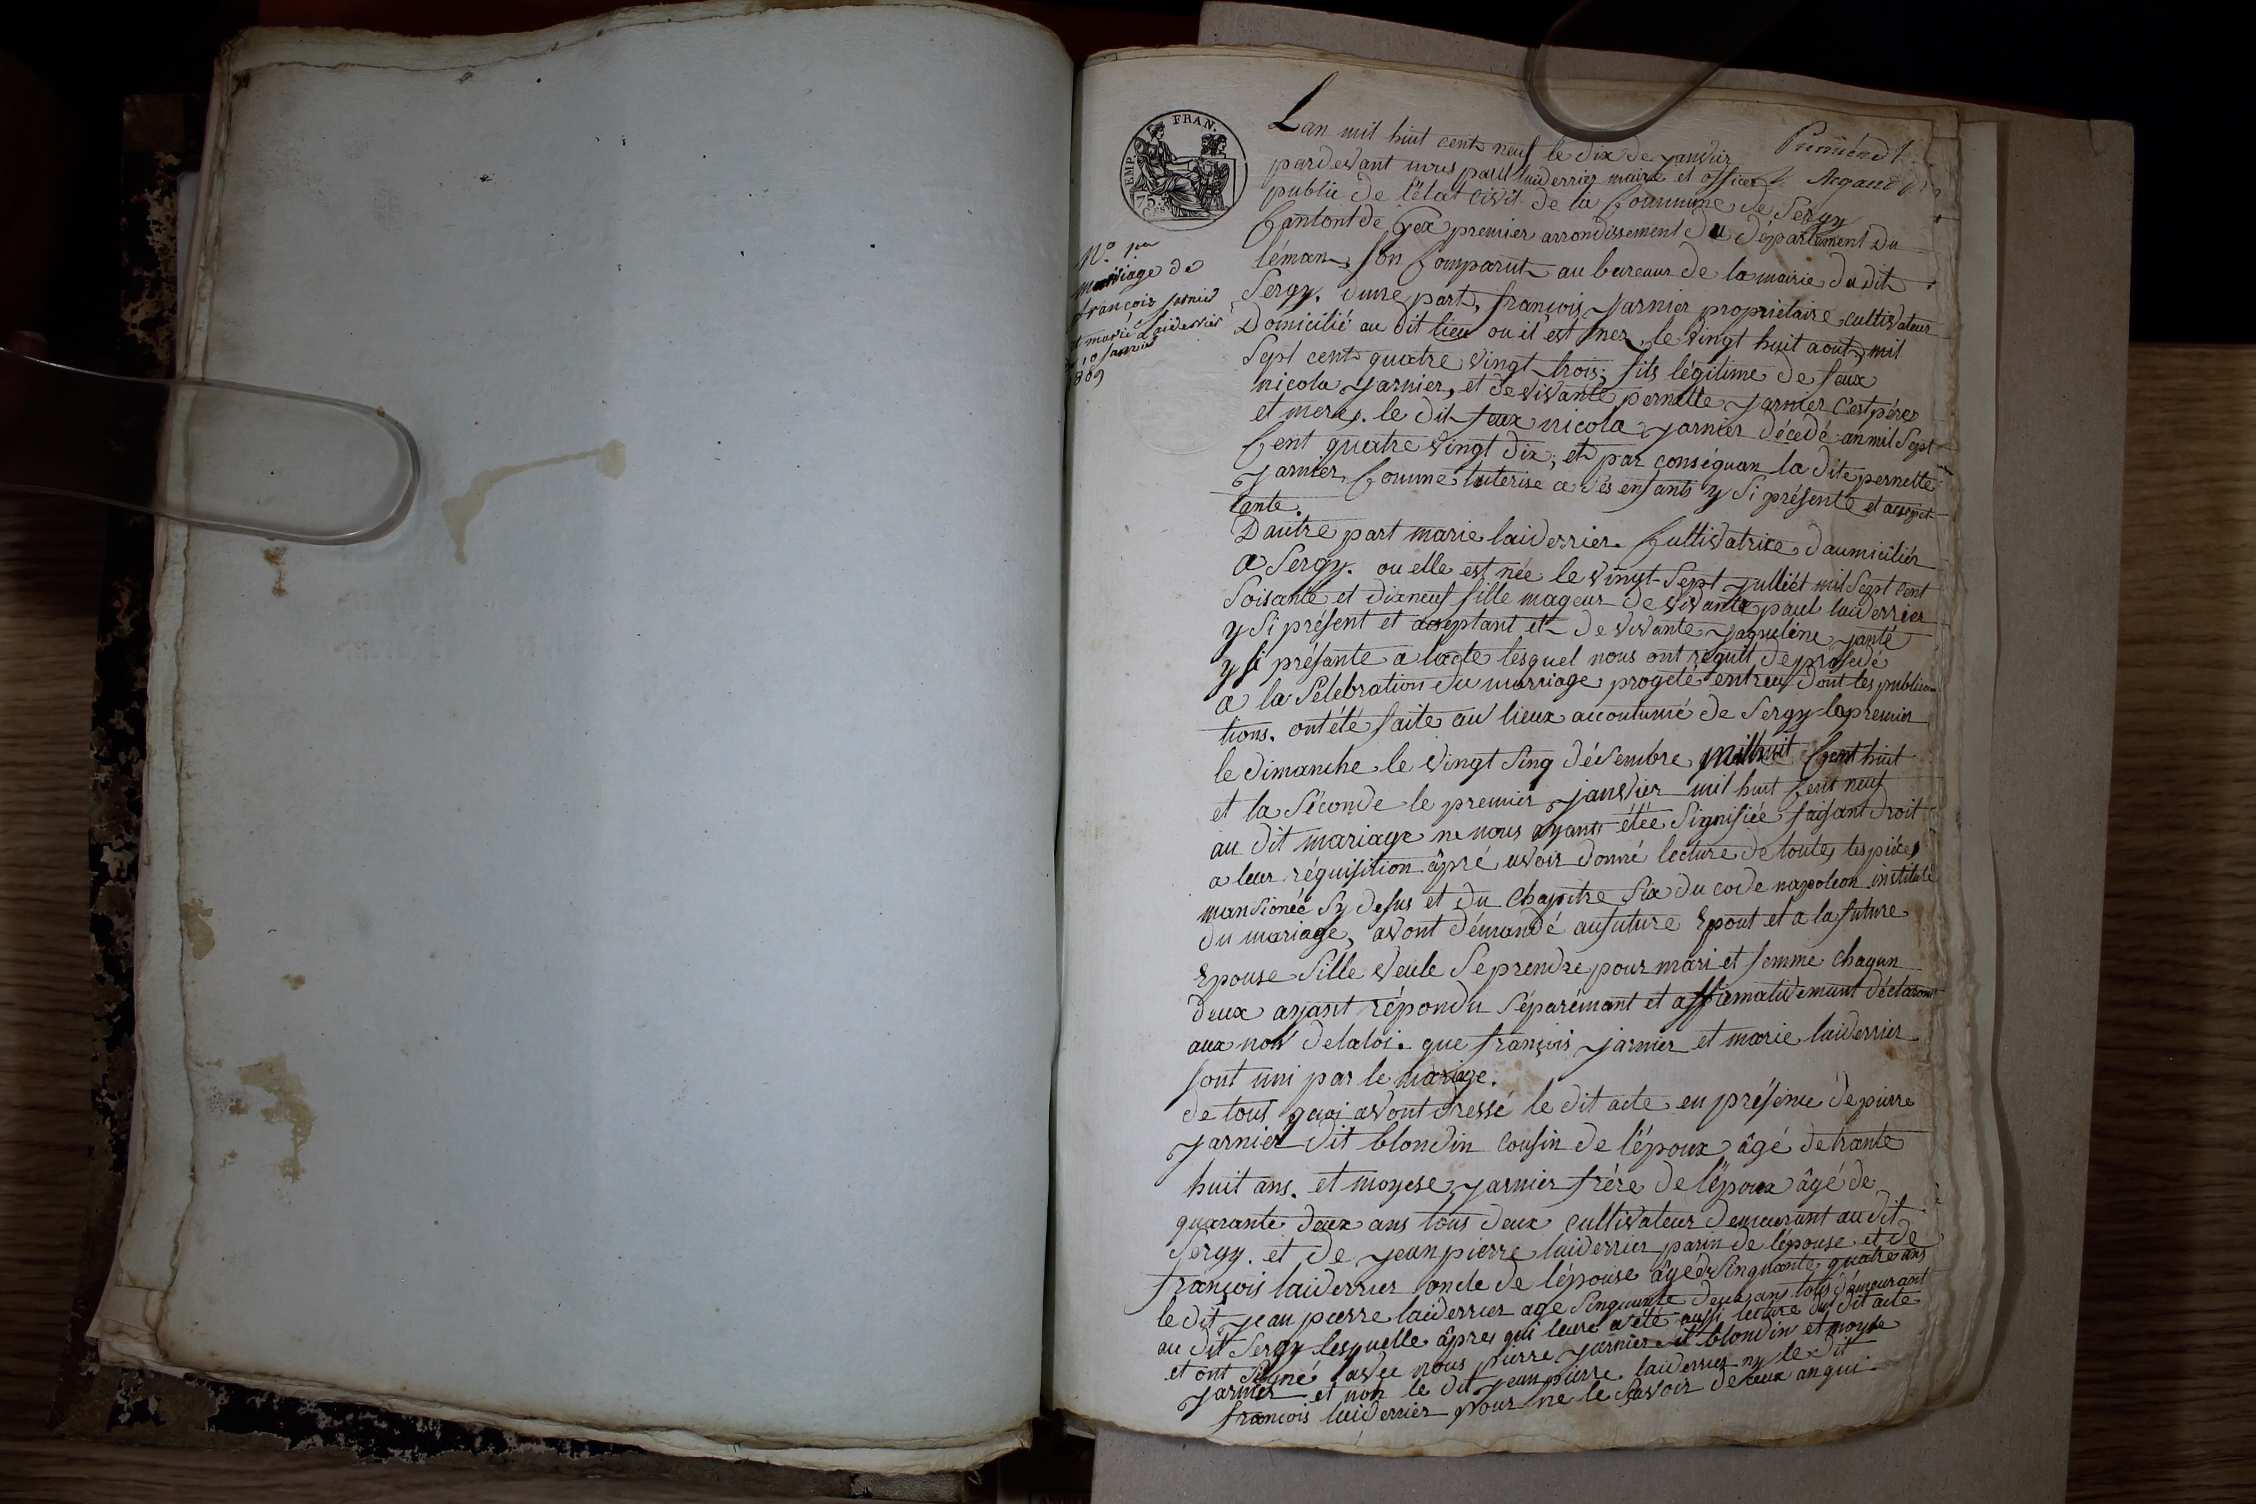 EMP. FRAN.
75.
CES
N.º 1er
mariage de
françois Jarnier
et marie laiderrier
du 10 Janvier
1809
Lan mil huit cents neuf le dix de janvier
pardevant nous paul laiderrier maire et officier
public de l'état civil de la Commune de Sergy
Cantont de Gex premier arrondissement du département du
léman, son Comparut au bureaux de la mairie du dit
Sergy. d'une part, françois Jarnier propriétaire cultivateur
Domicilié au dit lieu ou il est nez, le vingt huit aout mil
Sept cents quatre vingt trois; fils légitime de feux
nicola Jarnier, et de vivante pernette Jarnier c'est père
et mere, le dit feux nicola Jarnier décédé an mil Sept
Cent quatre vingt dix; et par conséquan la dite pernette
Jarnier Comme tuterise a ses enfants y Si présente et accept
tante.
Dautre part marie laiderrier. Cultivatrice daumiciliér
a Sergy. ou elle est née le vingt-Sept Julliet mil Sept Cent
Soisante et dixneuf fille mageur de vivante paul laiderrier
y Si présent et acceptant et de vivante Jaqueline Janté
y Si présante a lacte lesquel nous ont requit de prosedé
a la Sélebration du marriage progeté entreux dont les publica
tions. ont été faite au lieux accoutumé de Sergy la premier
le dimanche le vingt Sinq désembre mil huit Cent huit
et la Séconde le premier janvier mil huit Cent neuf
au dit mariage ne nous ayant étée Signifiée faisant droit
a leur réquisition âpré avoir donné lecture de toutes les pièces
mansionée Sy desus et du chapitre Six du code napoleon institulé
du mariage, avont démandé au future Epout et a la future
Epouse Sille veule Se prendre pour mari et femme chaqun
deux ayant répondu Séparémant et affirmativemant déclarons
aux non de la loi. que françois Jarnier et marie laiderrier
Sont uni par le mariage.
de tous quoi avont dressé le dit acte en présence de pierre
Jarnier dit blondin cousin de l'époux âgé de trante
huit ans. et moyese Jarnier frére de l'époux âgé de
quarante deux ans tous deux cultivateur demeurant au dit
Sergy. et de Jean pierre laiderrier parin de l'épouse et de
françois laiderrier oncle de l'épouse âgé de Sinquante quatre ans
le dit Jean pierre laiderrier age Sinquante deux ans tous démeurant
au dit Sergy lesquelle âpres qui leure a été aussi lecture du dit acte
et ont Signé avec nous pierre Jarnier dit blondin et moyse
Jarnier et non le dit Jean pierre laiderrier ny le dit
françois laiderrier pour ne le Savoir de ceux anqui